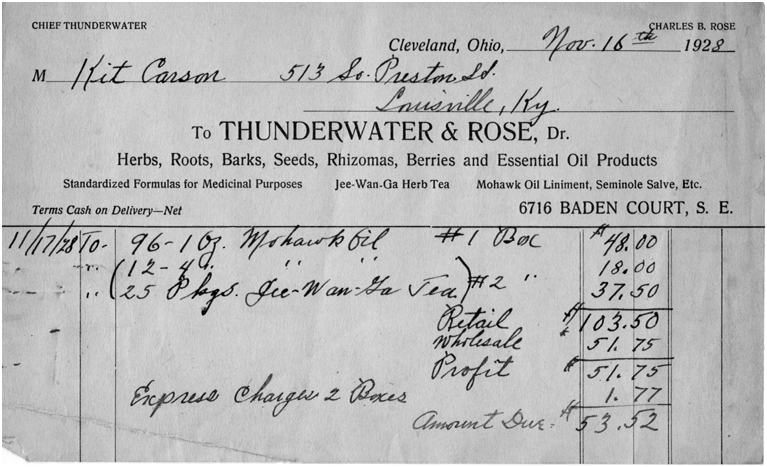 CHIEF THUNDERWATER CHARLES B. ROSE
Cleveland, Ohio, Nov. 16th 1928
M Kit Carson 513 So. Preston St.
Louisville, Ky.
To THUNDERWATER & ROSE, Dr.
Herbs, Roots, Barks, Seeds, Rhizomas, Berries and Essential Oil Products
Standardized Formulas for Medicinal Purposes Jee-Wan-Ga Herb Tea Mohawk Oil Liniment, Seminole Salve, Etc.
Terms Cash on Delivery—Net 6716 BADEN COURT, S. E.
11/17/28 To- 96-1 Oz. Mohawk Oil #1 Box $48.00
" (12-4 " " " 18.00
" 25 Pkgs. Jee-Wan-Ga Tea) #2 " 37.50
Retail $103.50
Wholesale 51.75
Profit $51.75
Express Charges 2 Boxes 1.77
Amount Due. $53.52